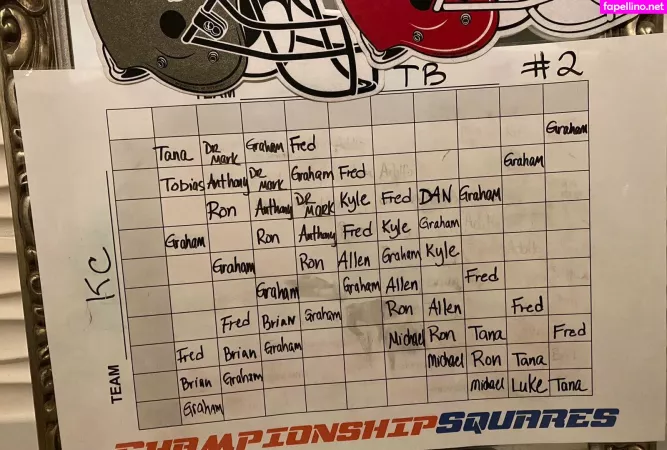 fapellino.net
TEAM TB #2
Graham
Tana Dr MARK Graham Fred
Graham
Tobias Anthony Dr MARK Graham Fred
Ron Anthony DR MARK Kyle Fred DAN Graham
Graham Ron Anthony Fred Kyle Graham
Graham Ron Allen Graham Kyle
Graham Graham Allen Fred
Fred Brian Graham Ron Allen Fred
Fred Brian Graham Michael Ron Tana Fred
Brian Graham Michael Ron Tana
Graham Michael Luke Tana
TEAM KC
CHAMPIONSHIP SQUARES